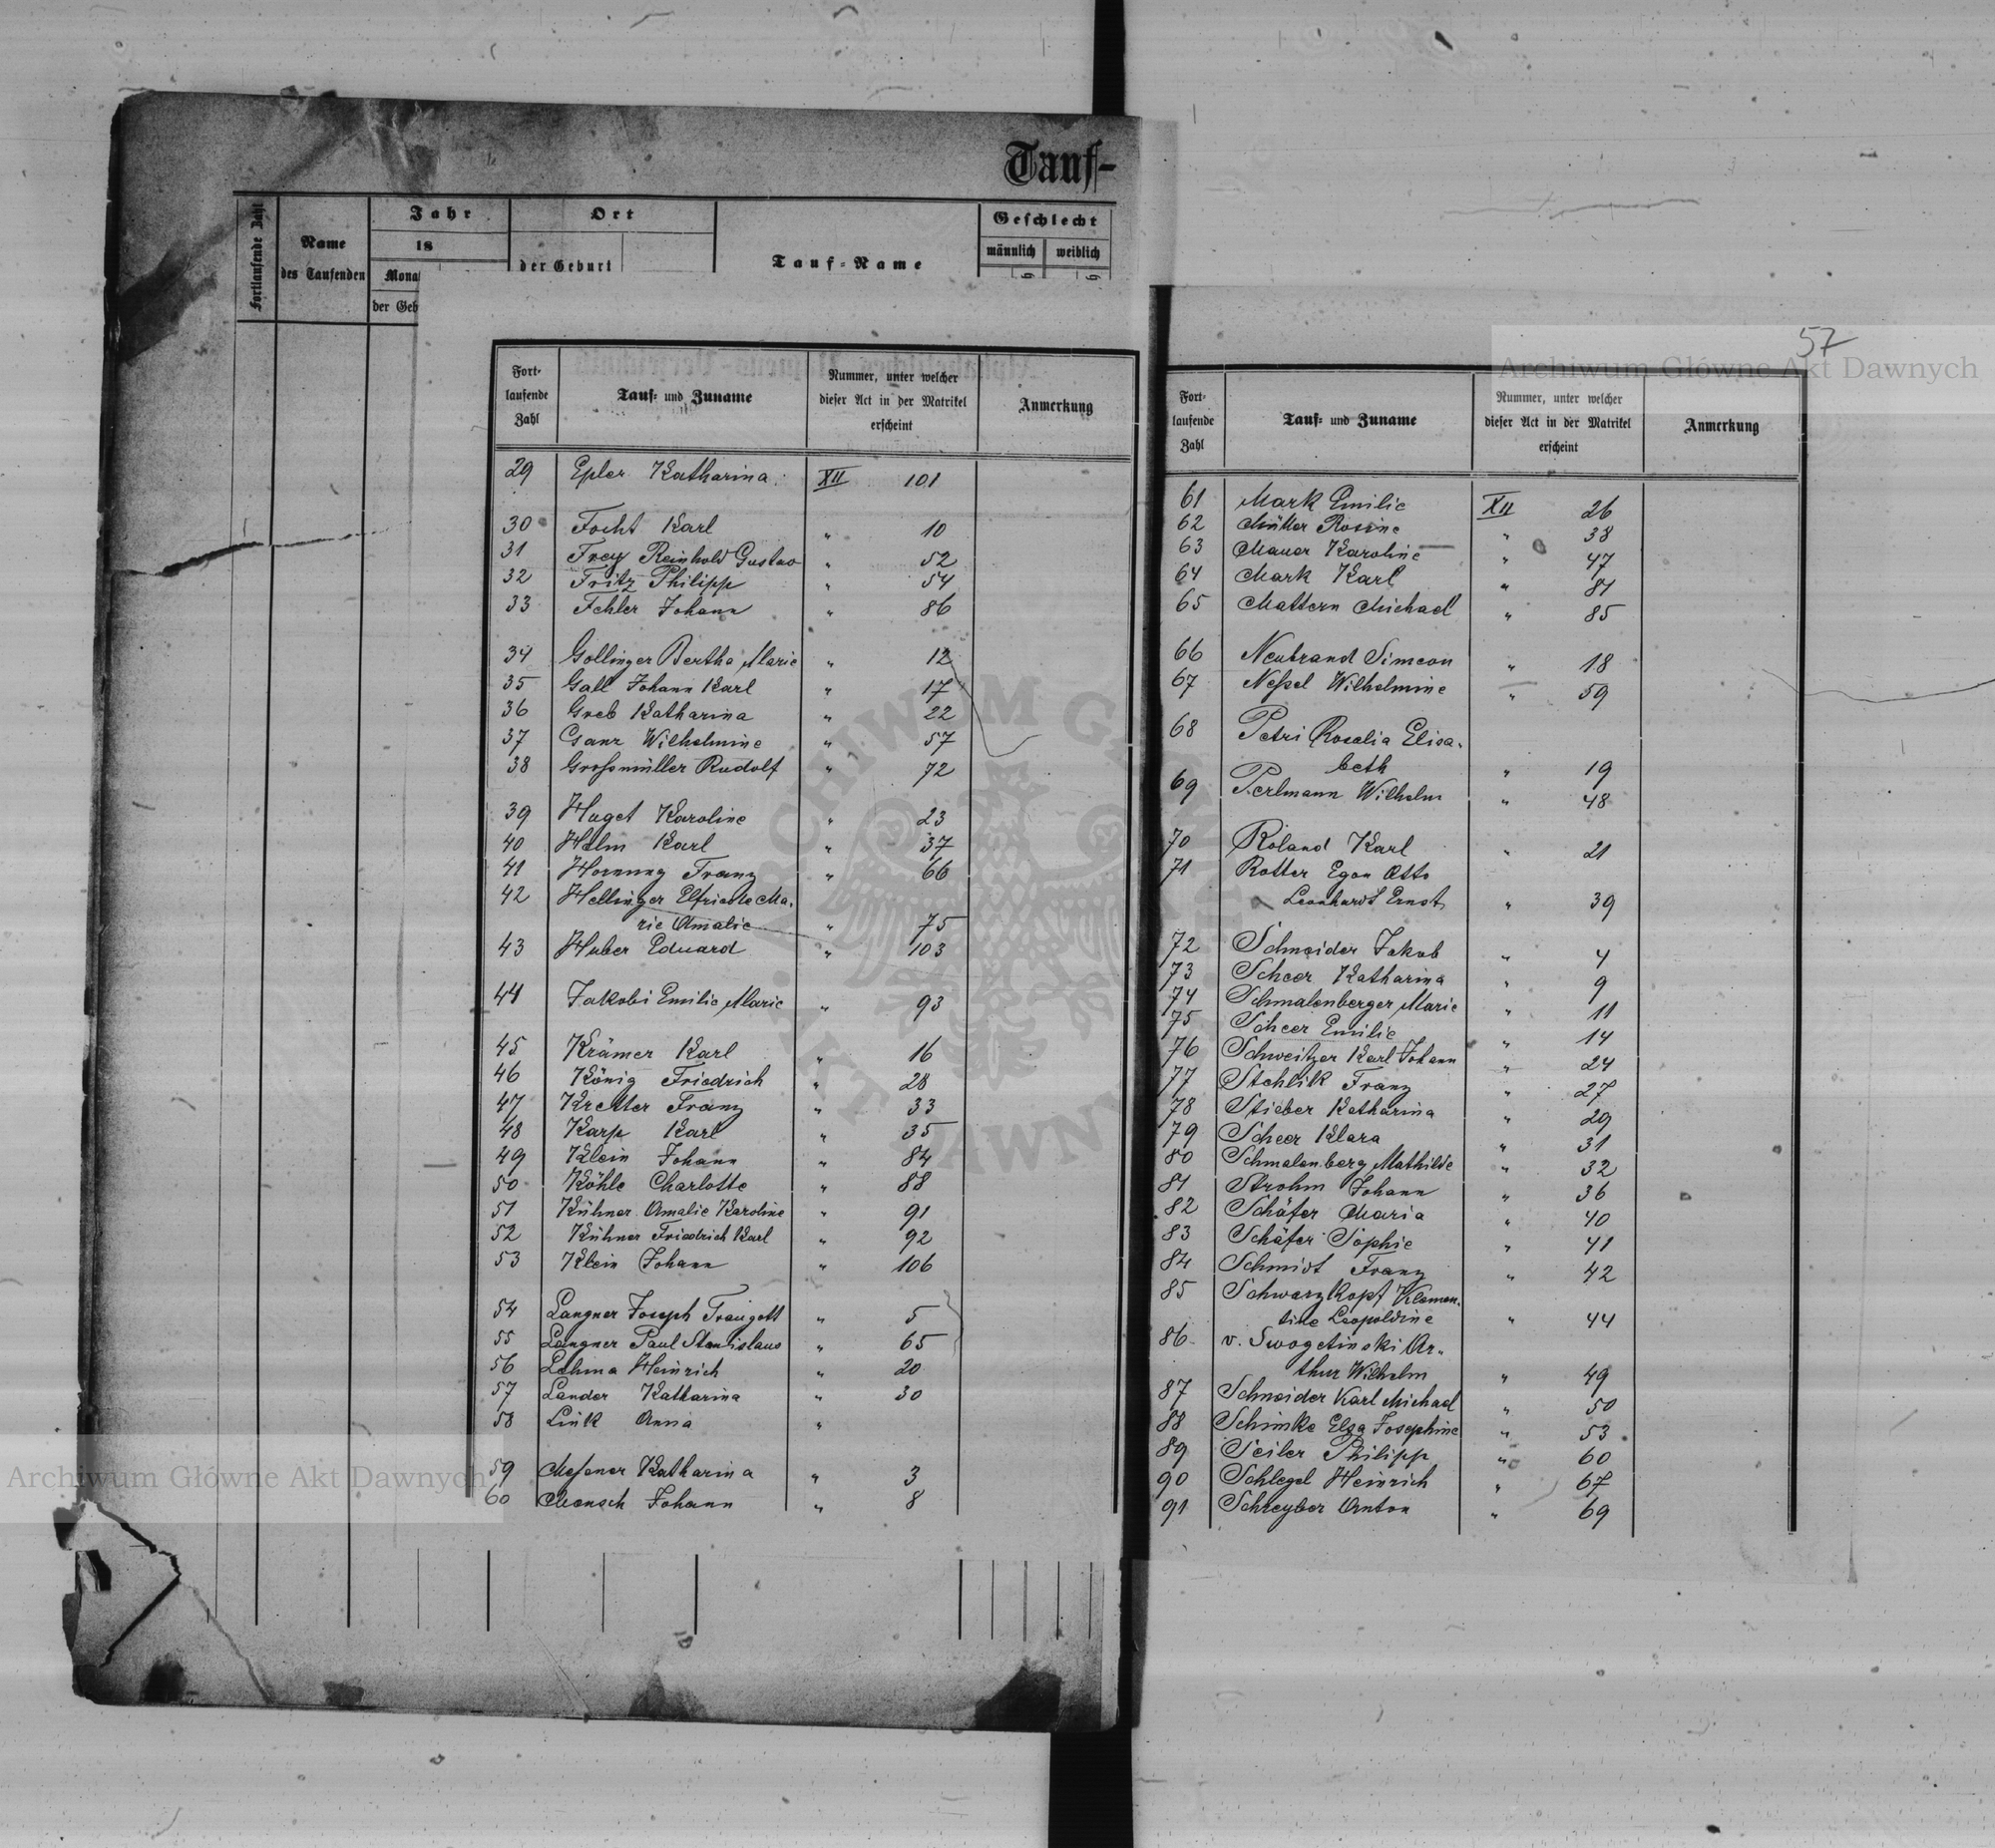 Tauf-
Fortlaufende Zahl
Name
des Taufenden
Jahr
18
Mona
der Geb
Ort
der Geburt
Tauf-Name
Geschlecht
männlich weiblich
57
Archiwum Główne Akt Dawnych
Fort-
laufende
Zahl
Tauf- und Zuname
Nummer, unter welcher
dieser Act in der Matrikel
erscheint
Anmerkung
29 Epler Katharina XII 101
30 Focht Karl " 10
31 Frey Reinhold Gustav " 52
32 Fritz Philipp " 54
33 Fehler Johann " 86
34 Gollinger Bertha Marie " 12
35 Gall Johann Karl " 17
36 Greb Katharina " 22
37 Ganz Wilhelmine " 57
38 Großmüller Rudolf " 72
39 Huget Karoline " 23
40 Halm Karl " 37
41 Hornung Franz " 66
42 Hellinger Elfriede Ma-
rie Amalie " 75
43 Huber Eduard " 103
44 Jakobi Emilie Marie " 93
45 Krämer Karl " 16
46 König Friedrich " 28
47 Kretter Franz " 33
48 Karp Karl " 35
49 Klein Johann " 84
50 Köhle Charlotte " 88
51 Kühner Amalie Karoline " 91
52 Kühner Friedrich Karl " 92
53 Klein Johann " 106
54 Langner Joseph Traugott " 5
55 Langner Paul Stanislaus " 65
56 Lehma Heinrich " 20
57 Lander Katharina " 30
58 Link Anna "
59 Meßner Katharina " 3
60 Mensch Johann " 8
Fort-
laufende
Zahl
Tauf- und Zuname
Nummer, unter welcher
dieser Act in der Matrikel
erscheint
Anmerkung
61 Mark Emilie XII 26
62 Müller Rosine " 38
63 Mauer Karoline " 47
64 Mark Karl " 81
65 Mattern Michael " 85
66 Neubrand Simeon " 18
67 Neßel Wilhelmine " 59
68 Petri Rosalia Elisa-
beth " 19
69 Perlmann Wilhelm " 48
70 Roland Karl " 21
71 Rotter Egon Otto
Leonhardt Ernst " 39
72 Schneider Jakob " 4
73 Scheer Katharina " 9
74 Schmalenberger Marie " 11
75 Scheer Emilie " 14
76 Schweitzer Karl Johann " 24
77 Stehlik Franz " 27
78 Stieber Katharina " 29
79 Scheer Klara " 31
80 Schmalenberg Mathilde " 32
81 Strohm Johann " 36
82 Schäfer Maria " 40
83 Schäfer Sophie " 41
84 Schmidt Franz " 42
85 Schwarzkopf Klemen-
tine Leopoldine " 44
86 v. Swogetinski Ar-
thur Wilhelm " 49
87 Schneider Karl Michael " 50
88 Schimke Elsa Josephine " 53
89 Seiler Philipp " 60
90 Schlegel Heinrich " 67
91 Schreyber Anton " 69
Archiwum Główne Akt Dawnych
ARCHIWUM GŁÓWNE AKT DAWNYCH